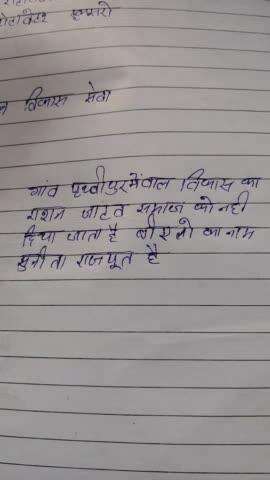 हमारी
विकास सेवा
गांव पृथ्वीपुर में वाल विकास का
राशन जाटव समाज को नही
दिया जाता है का नाम
सुनीता राजपूत है